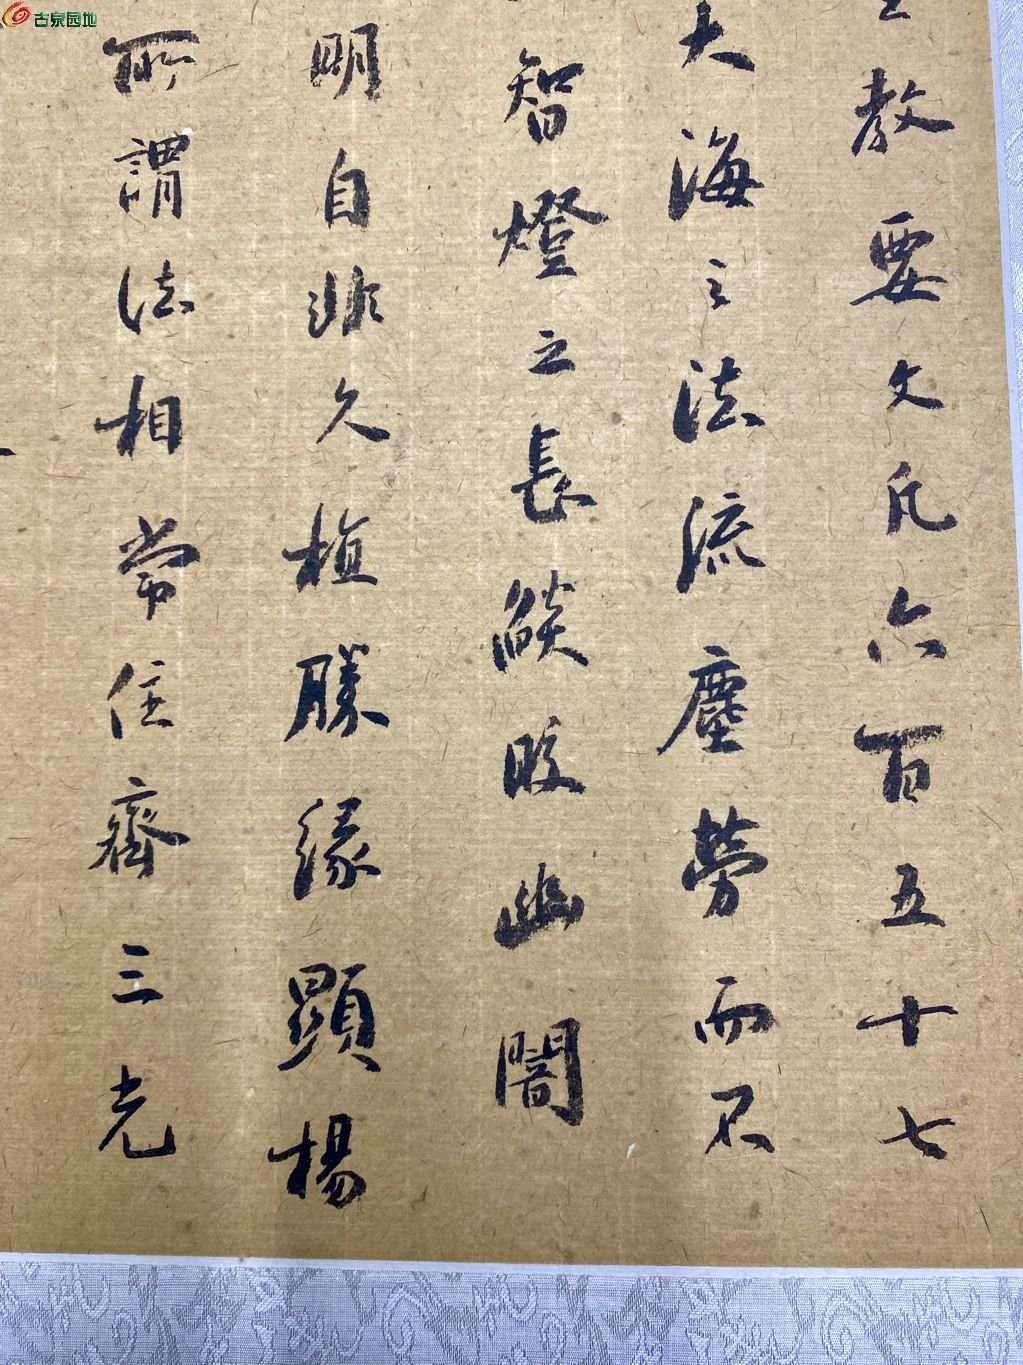 古泉园地
教要文凡六百五十七
大海之法流塵勞而不
智燈之長燄皎幽闇
明自非久植勝緣顯楊
所謂法相常住齊三光